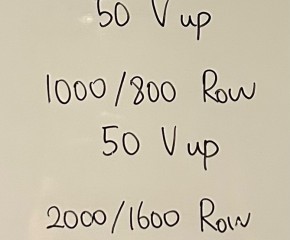 50 V up
1000/800 Row
50 V up
2000/1600 Row